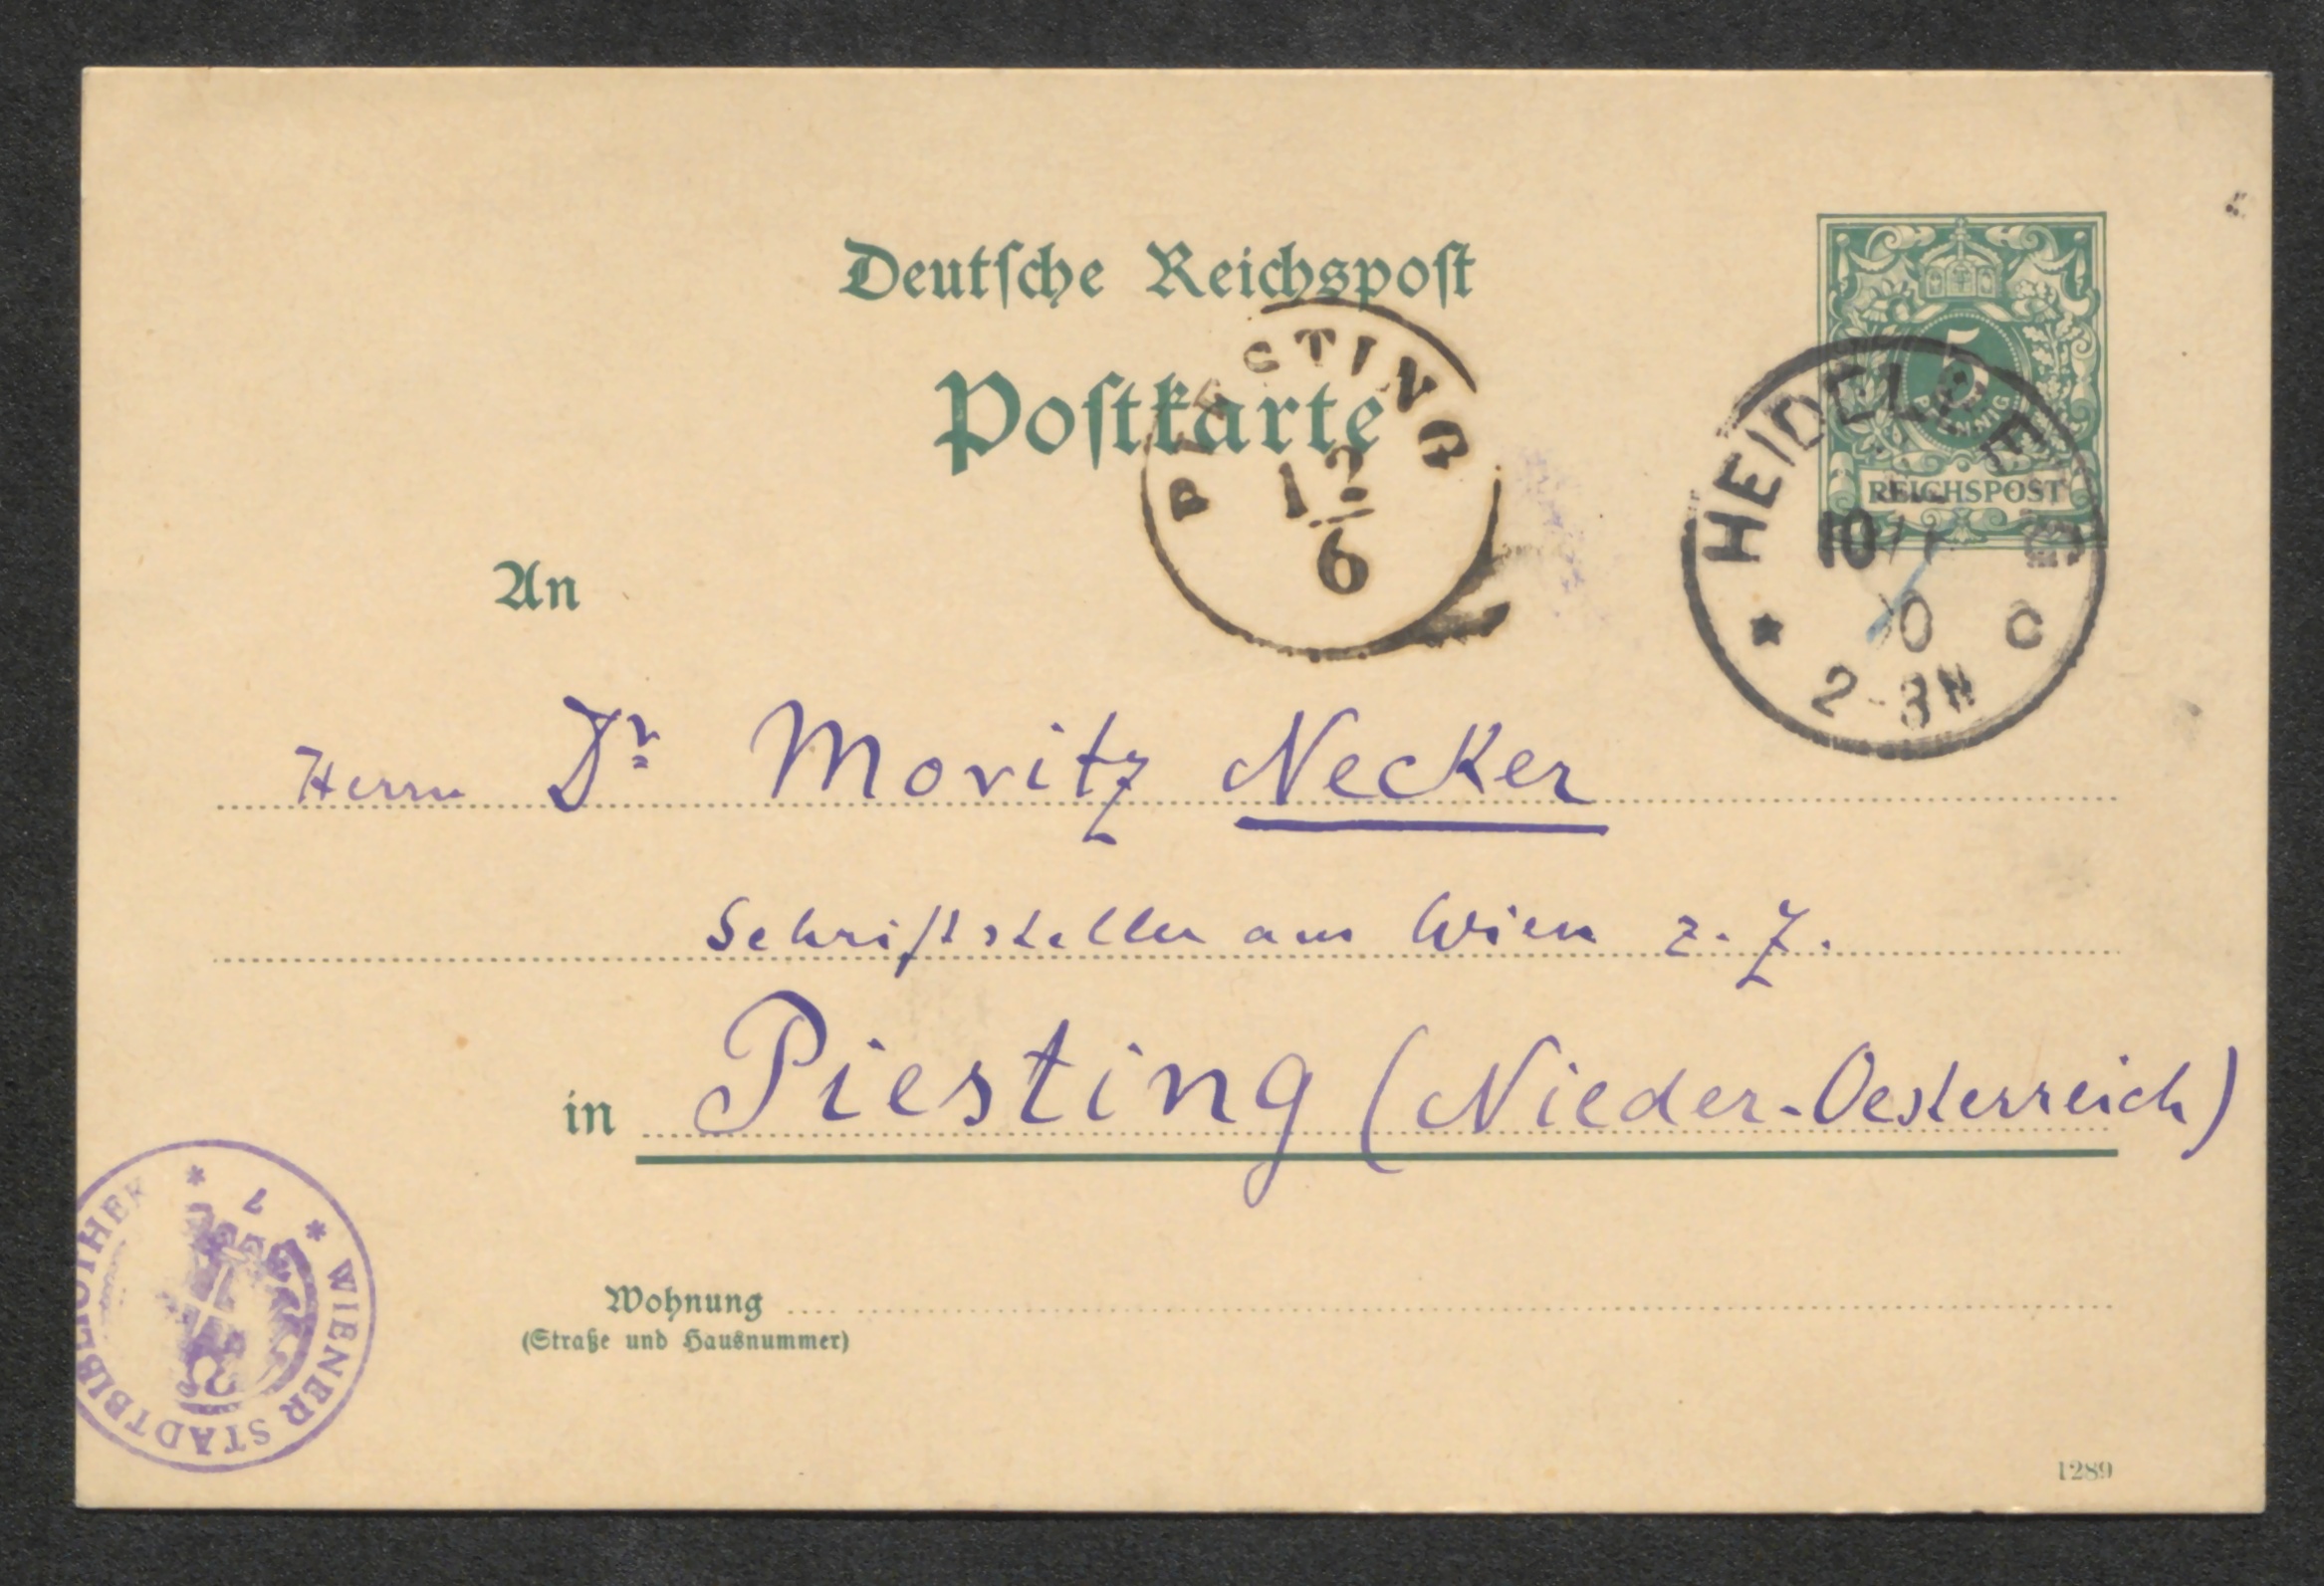 Deutsche Reichspost
Postkarte
5
PFENNIG
REICHSPOST
PIESTING
12
6
HEIDELBERG
10
2-3N
An
Herrn Dr Moritz Necker
Schriftsteller aus Wien z. Z.
in Piesting (Nieder-Oesterreich)
Wohnung
(Straße und Hausnummer)
* WIENER STADTBIBLIOTHEK *
1289